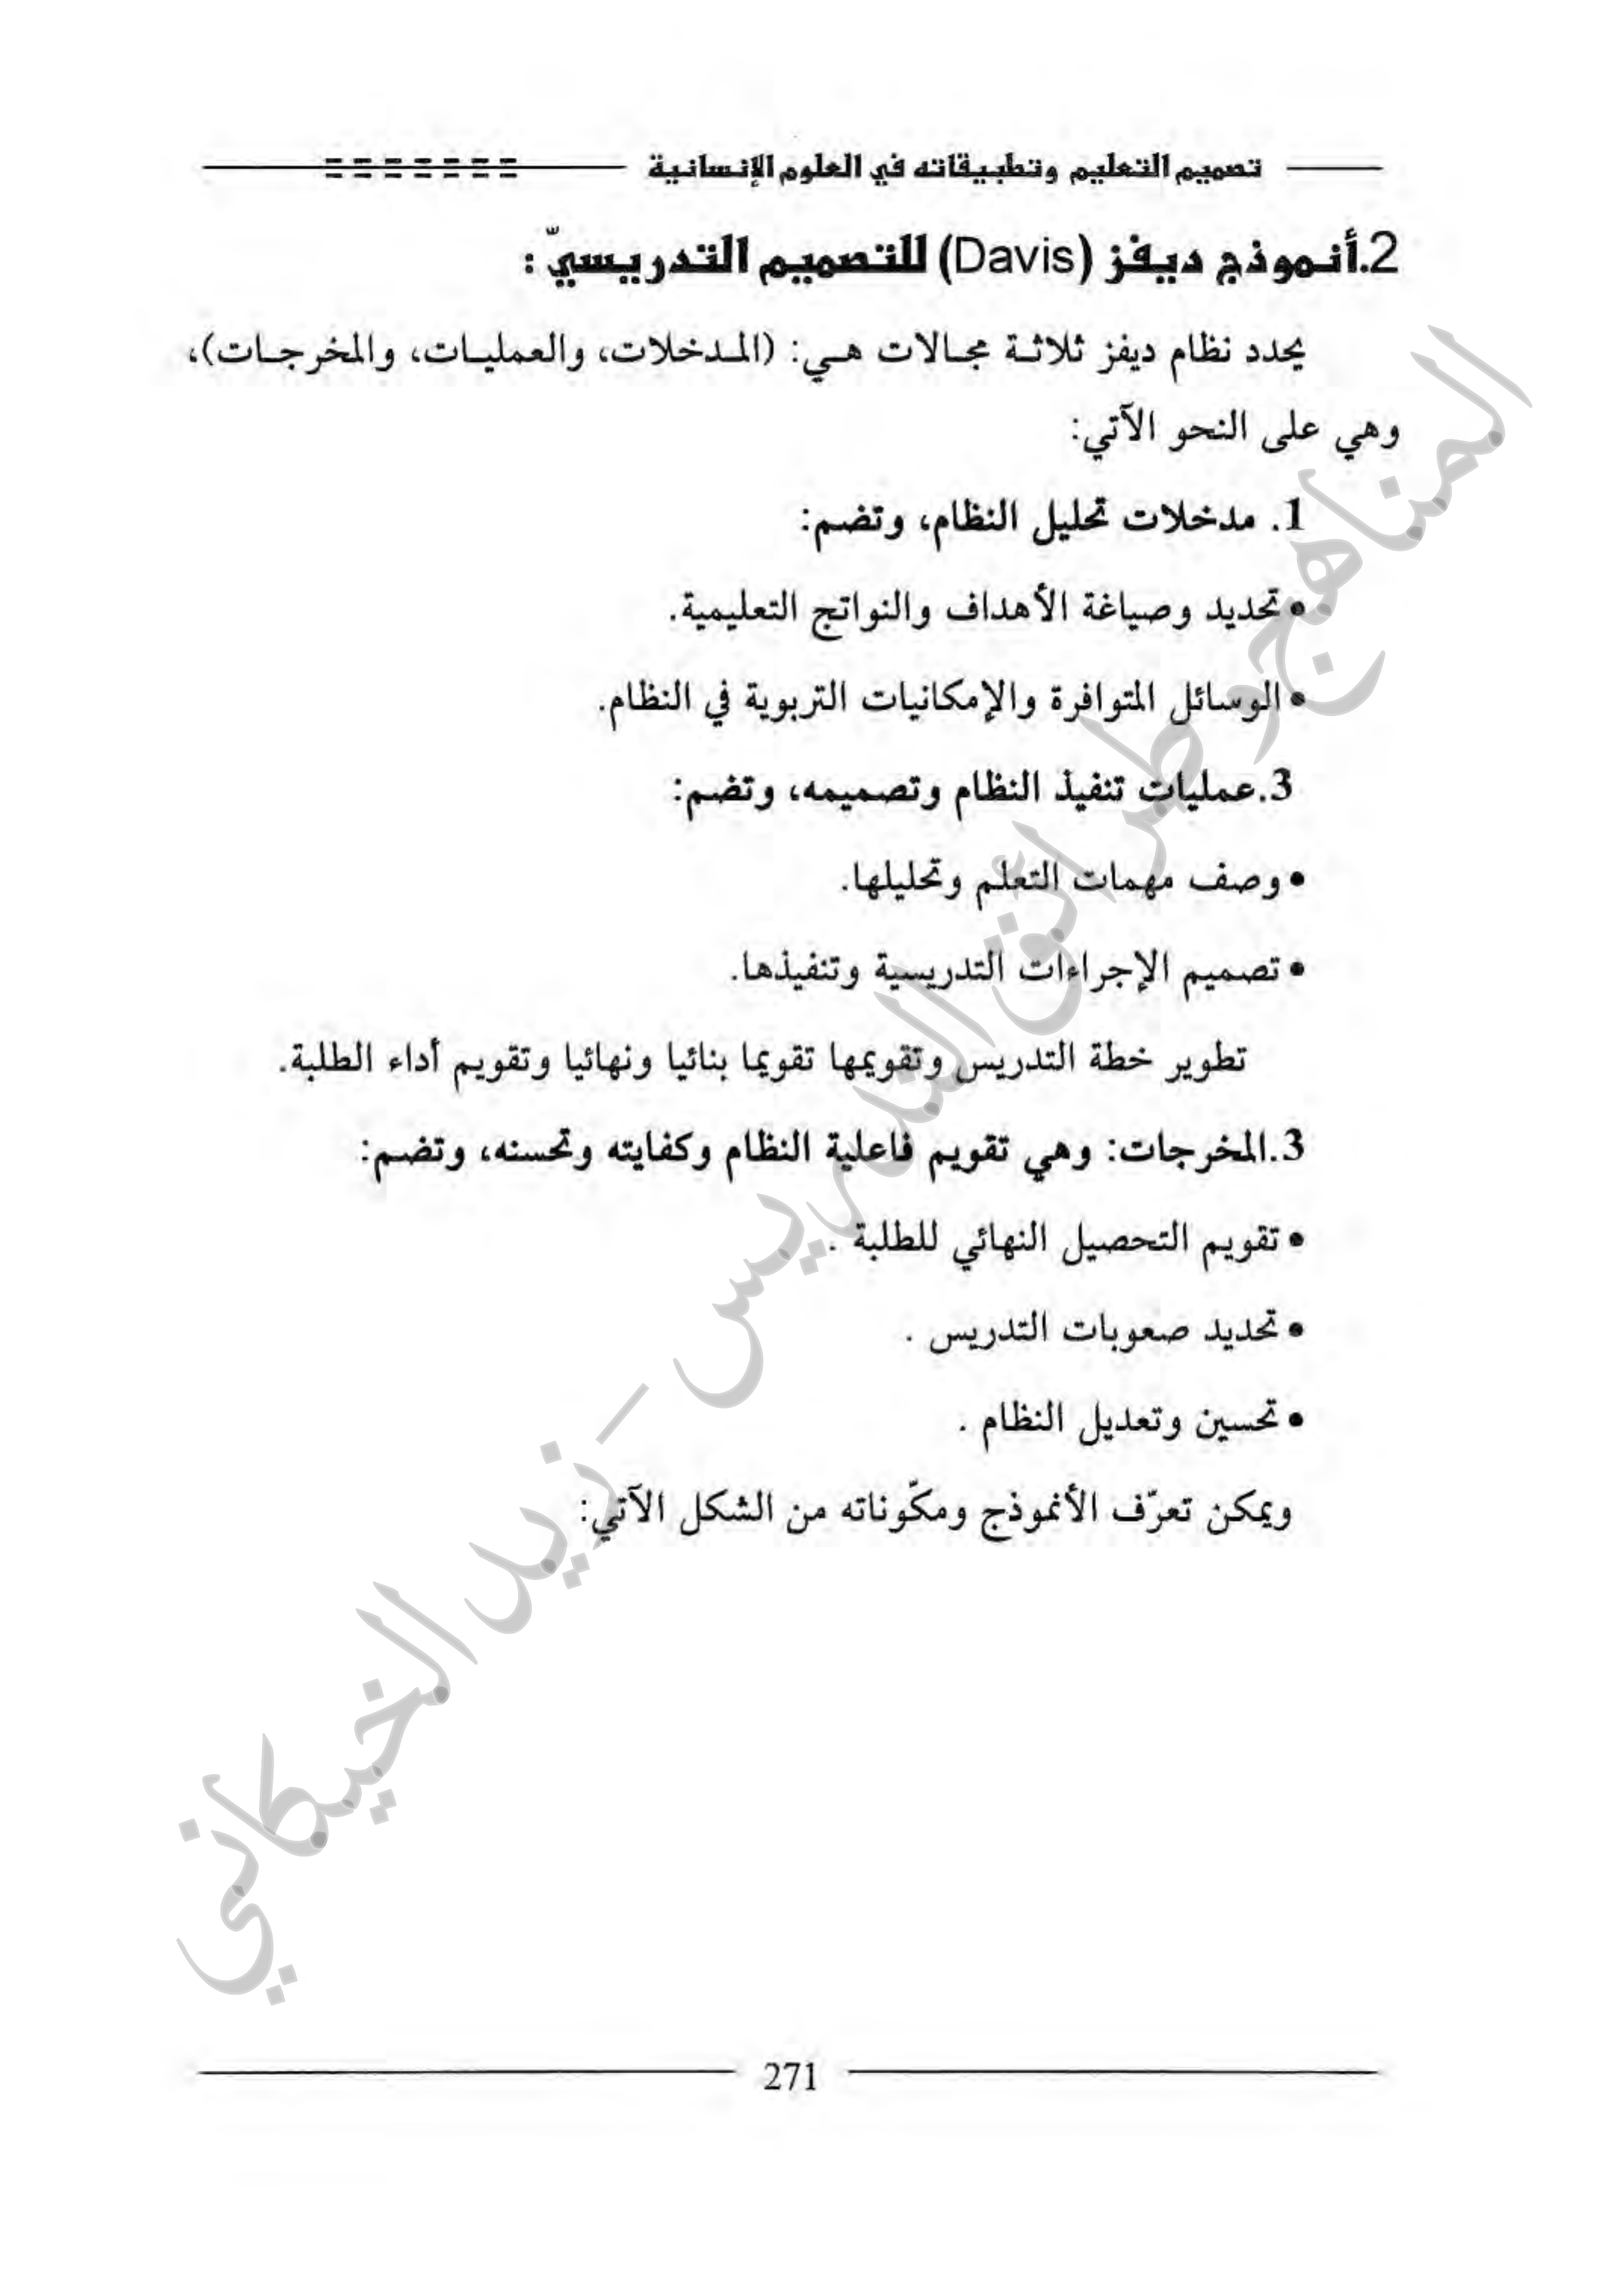 تصميم التعليم وتطبيقاته في العلوم الإنسانية
2.أنموذج ديفز (Davis) للتصميم التدريسيّ :
يحدد نظام ديفز ثلاثة مجالات هي: (المدخلات، والعمليات، والمخرجات)،
وهي على النحو الآتي:
1. مدخلات تحليل النظام، وتضم:
• تحديد وصياغة الأهداف والنواتج التعليمية.
• الوسائل المتوافرة والإمكانيات التربوية في النظام.
3.عمليات تنفيذ النظام وتصميمه، وتضم:
• وصف مهمات التعلم وتحليلها.
• تصميم الإجراءات التدريسية وتنفيذها.
تطوير خطة التدريس وتقويمها تقويما بنائيا ونهائيا وتقويم أداء الطلبة.
3.المخرجات: وهي تقويم فاعلية النظام وكفايته وتحسنه، وتضم:
• تقويم التحصيل النهائي للطلبة .
• تحديد صعوبات التدريس .
• تحسين وتعديل النظام .
ويمكن تعرّف الأنموذج ومكّوناته من الشكل الآتي:
المناهج وطرائق التدريس - زيد الخيكاني
271